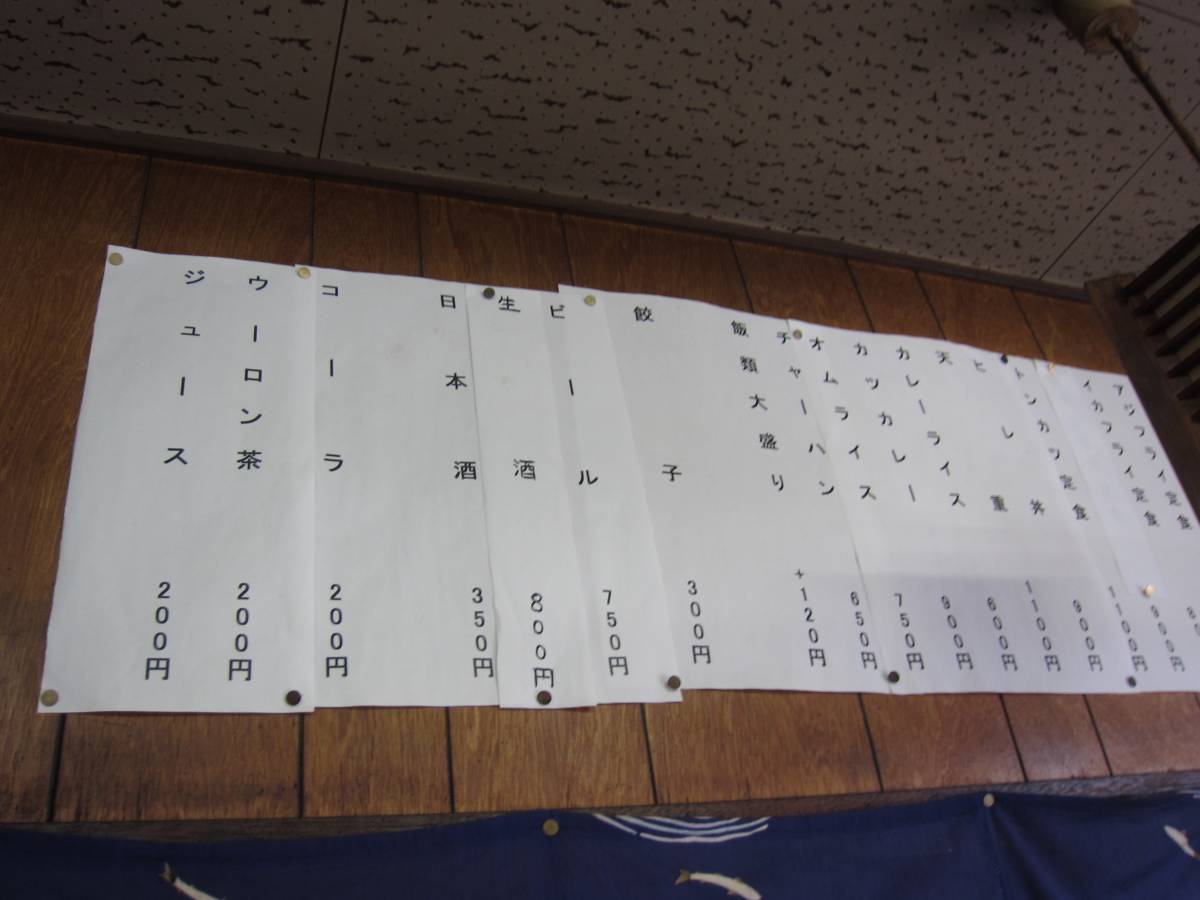 アジフライ定食
イカフライ定食 900円
トンカツ定食 1100円
ヒレ丼 900円
天重 1100円
カレーライス 600円
カツカレー 900円
オムライス 750円
チャーハン 650円
飯類大盛り +120円
餃子 300円
ビール 750円
生酒 800円
日本酒 350円
コーラ 200円
ウーロン茶 200円
ジュース 200円